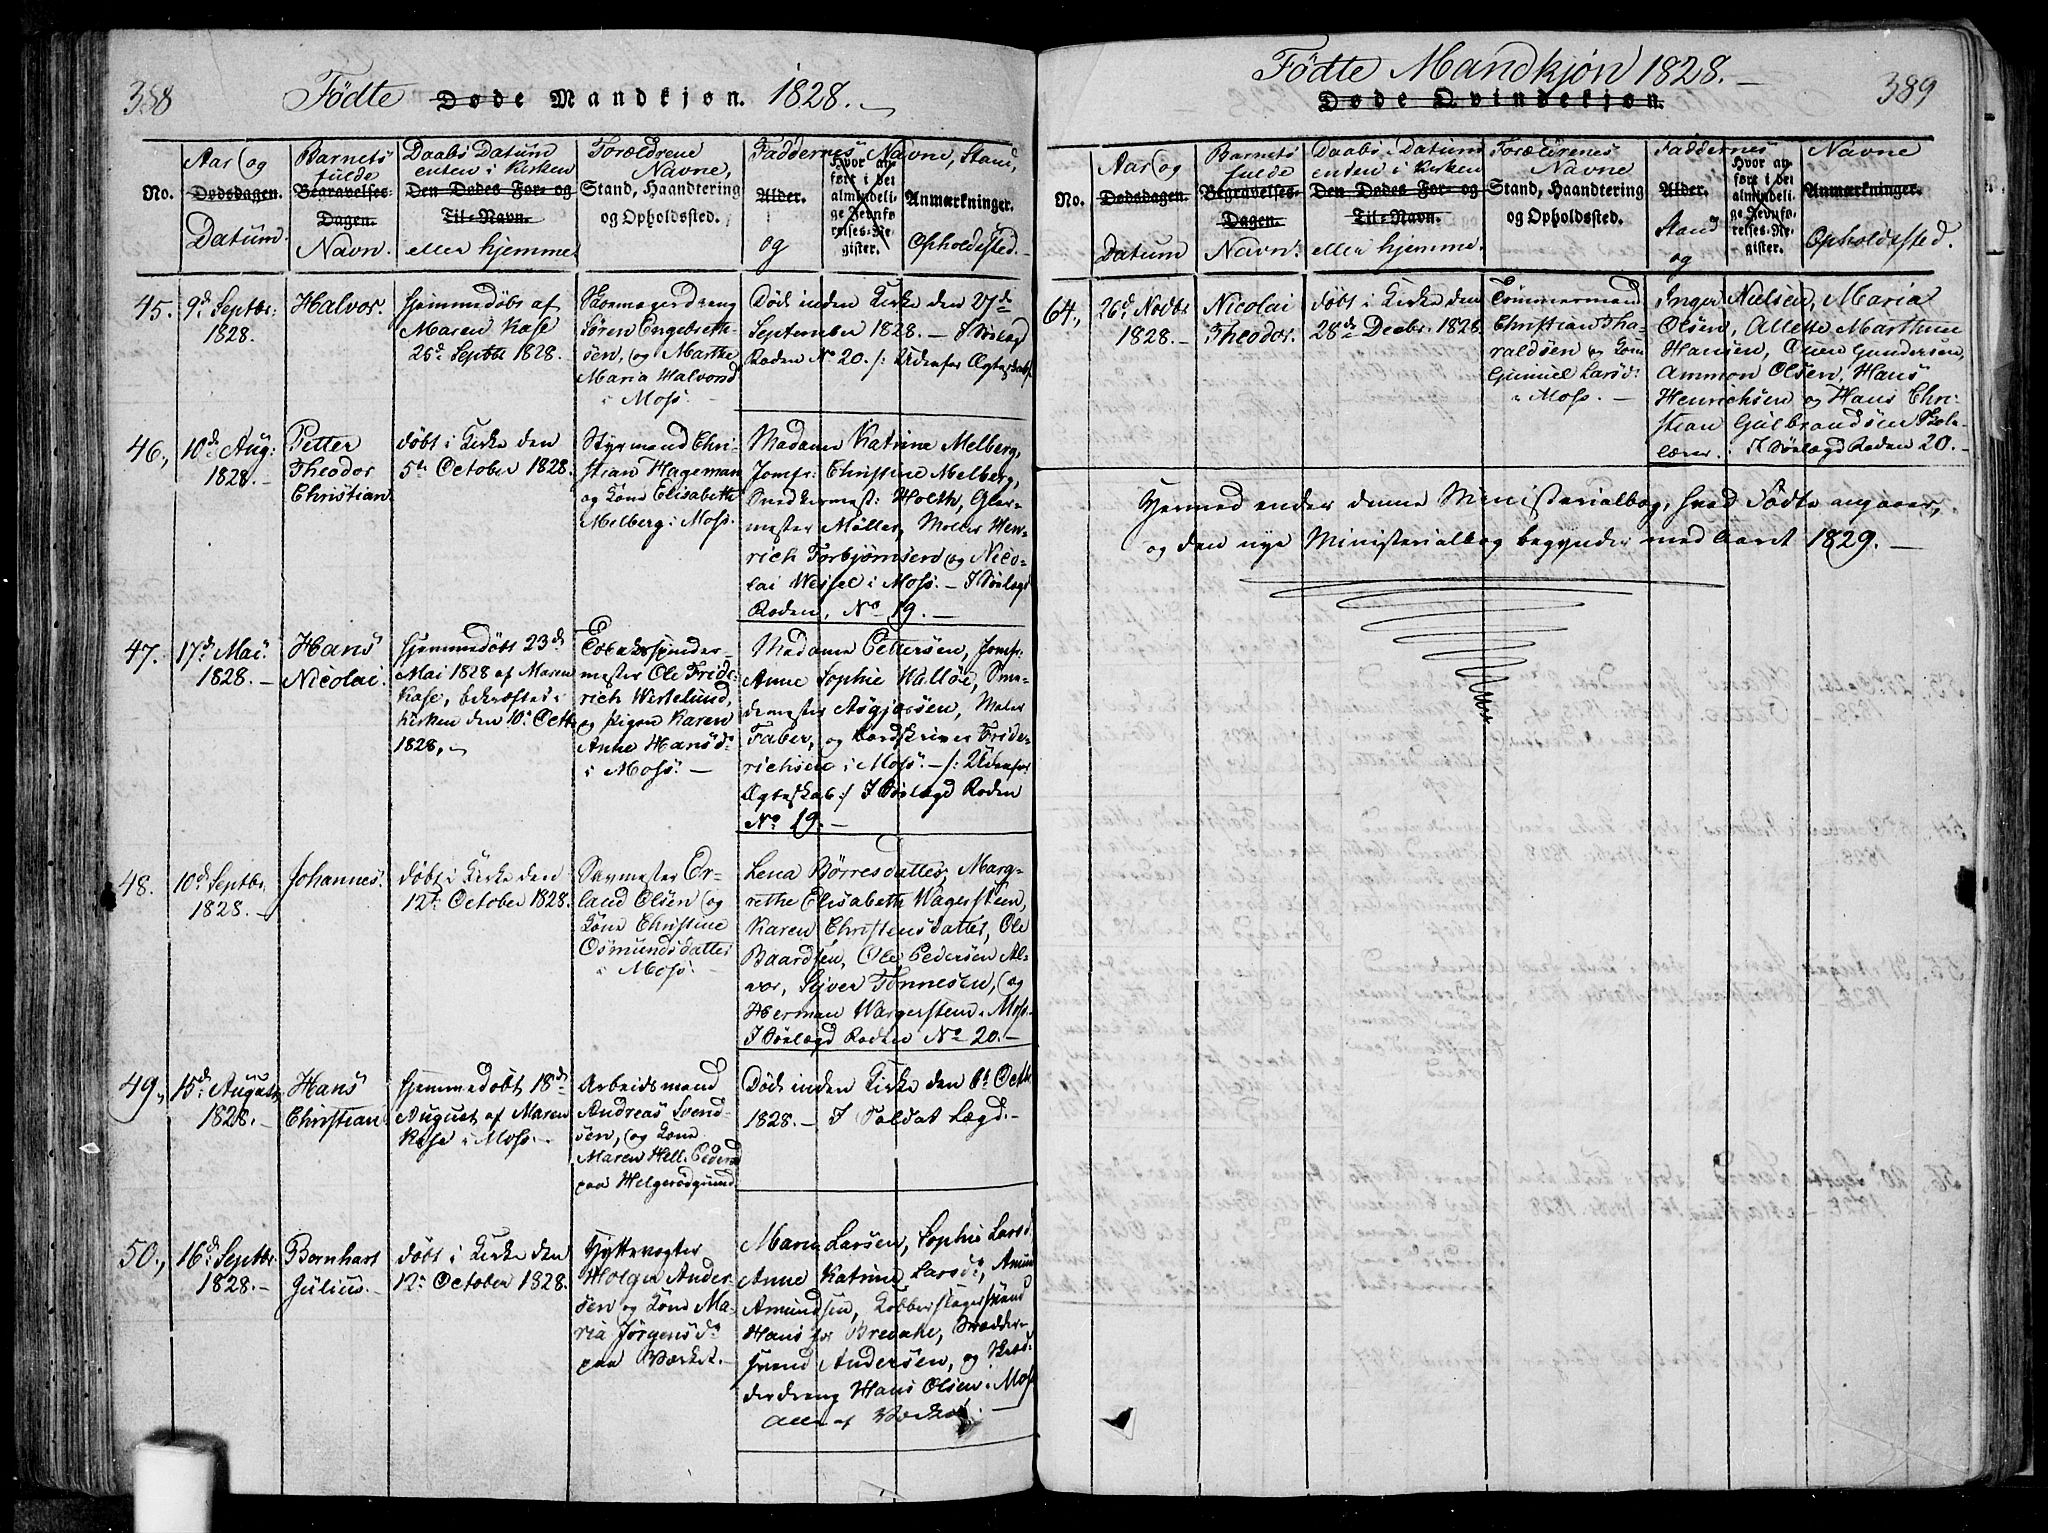 388
Fødte Døde Mandkjøn. 1828. –
No.
Aar og
Dødsdagen.
Datum.
Barnets
fulde
Begravelses-
Dagen.
Navn.
Daabs Datum
enten i Kirken
Den Dødes For- og
Til-Navn.
eller hjemme.
Forældrene
Navne,
Stand, Haandtering
og Opholdssted.
Faddernes Navne, Stand,
Alder.
og
Hvor an-
ført i det
almindeli-
ge Jevnfø-
relses-Re-
gister.
Anmærkninger.
Opholdssted. –
45.
9d Septbr:
1828.
Halvor.
Hjemmedøbt af
Maren Kase
26d Septbr 1828.
Skomagerdreng
Søren Engebret-
sen, og Marthe
Maria Halvorsd
i Moss. –
Død inden Kirke den 21de
September 1828. – I Sölægd
Roden No 20. /: Udenfor Ægteskab
46,
10d Aug:
1828. –
Petter
Theodor
Christian
døbt i Kirke den
5te October 1828.
Styrmand Chri-
stian Hageman
og Kone Elisabeth
Melberg i Moss.
Madame Katrine Melberg,
Jomfr: Christine Melberg,
Snedkermest: Holth, Glar-
mester Møller, Moller Hen-
rich Torbjørnsen og Nico-
lai Wessel i Moss. – I Sölægd
Roden, No 19. –
47.
17d Mai
1828. –
Hans
Nicolai.
Hjemmedøbt 23d
Mai 1828 af Maren
Kase, bekræftet i
Kirken den 10d Octbr
1828, –
Tobaksspinder-
mester Ole Fride-
rich Westelund,
og Pigen Karen
Anne Hansd:
i Moss. –
Madame Pettersen, Jomfr:
Anne Sophie Walløe, Sme-
demester Asgjersen, Maler
Faber, og Bordskriver Fride-
richsen i Moss. – /: Udenfor
Ægteskab :/ I Sölægd Roden
No 19. –
48.
10d Septbr.
1828. –
Johannes.
døbt i Kirke den
12te October 1828.
Savmester Er-
land Olsen og
Kone Christine
Osmundsdatter
i Moss. –
Lena Børresdatter, Marg-
rethe Elisabeth Wagersteen,
Karen Christensdatter, Ole
Baardsen, Ole Pedersen Al-
vor, Syver Tønnesen, og
Herman Wagersteen i Moss
I Sölægd Roden No 20. –
49,
15d August
1828. –
Hans
Christian
Hjemmedøbt 18d
August af Maren
Kase i Moss. –
Arbeidsmand
Andreas Svend-
sen, og Kone
Maren Hell. Pedersd
paa Helgerödgrund
Død inden Kirke den 6te Octbr
1828. – I Soldat Lægd. –
50.,
16d Septbr
1828. –
Bernhart
Julius. –
døbt i Kirke den
12te October 1828.
Hyttevogter
Holger Ander-
sen og Kone Ma-
ria Jørgensd:
paa Værket. –
Maria Larsen, Sophie Larsd,
Anne Katrine Larsd:, Amund
Amundsen, Kobberslagersvend
Hans Bredahl, Skrædder-
svend Andersen, og Skræd-
derdreng Hans Olsen i Moss
Alle af Værket. –
Fødte Mandkjøn 1828. –
Døde Qvindekjøn.
389
No.
Aar og
Dødsdagen.
Datum
Barnets
fulde
Begravelses-
Dagen.
Navn.
Daabs Datum
enten i Kirken
Den Dødes For- og
Til-Navn.
eller hjemme.
Forældrenes
Navne
Stand, Haandtering
og Opholdssted.
Faddernes Navne
Alder.
Stand
og
Hvor an-
ført i det
almindeli-
ge Jevnfø-
relses-Re-
gister.
Anmærkninger.
Opholdssted.
64.,
26d Novbr
1828. –
Nicolai
Theodor.
døbt i Kirke den
28de Decbr. 1828.
Tömmermand
Christian Tha-
raldsen og Kone
Gunniel Larsd:
i Moss. –
Inger Nielsen, Maria
Olsen, Allette Marthine
Hansen, Ouen Gundersen,
Ammon Olsen, Hans
Henrichsen og Hans Chri-
stian Gulbrandsen Skole-
lærer. I Sölægd Roden 20. –
Hermed ender denne Ministerialbog, hvad Födte angaaer,
og den nye Ministerialbog begynder med Aaret 1829. –